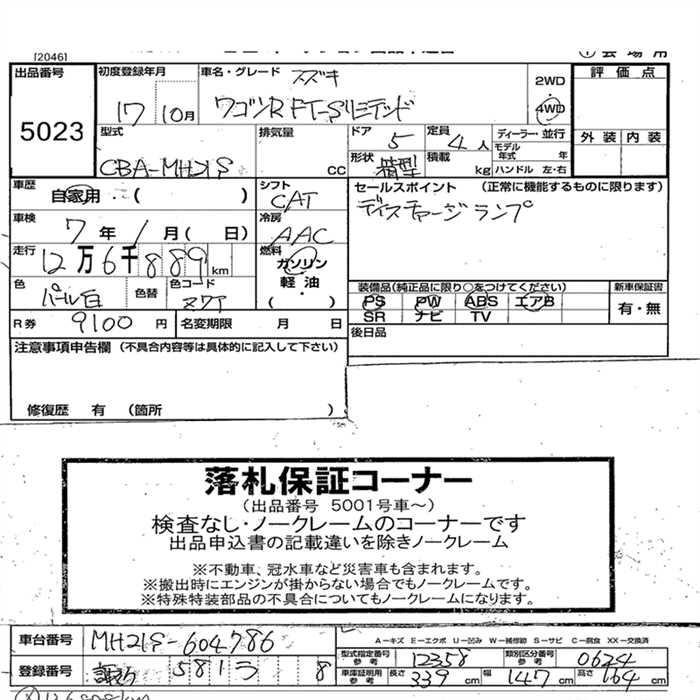 [2046]
① 会場用
出品番号 5023
初度登録年月 17 10月
車名・グレード スズキ
ワゴンR FT-Sリミテッド
2WD
4WD
評価点
外装 内装
型式 CBA-MH21S
排気量 CC
ドア 5
定員 4人
形状 箱型
積載 kg
ディーラー・並行
モデル年式 年
ハンドル 左・右
車歴 自家用・( )
シフト CAT
セールスポイント (正常に機能するものに限ります)
ディスチャージランプ
車検 7年 1月( 日)
冷房 AAC
走行 12万6千889km
燃料 ガソリン
軽油・
( )
色 パール白
色替
色コード
装備品(純正品に限り○をつけてください)
PS PW ABS エアB
SR ナビ TV
新車保証書
有・無
R券 9100円
名変期限 月 日
後日品
注意事項申告欄 (不具合内容等は具体的に記入して下さい)
修復歴 有 (箇所 )
落札保証コーナー
(出品番号 5001号車~)
検査なし・ノークレームのコーナーです
出品申込書の記載違いを除きノークレーム
※不動車、冠水車など災害車も含まれます。
※搬出時にエンジンが掛からない場合でもノークレームです。
※特殊特装部品の不具合についてもノークレームになります。
車台番号 MH21S-604786
A-キズ E-エクボ U-凹み W-補修跡 S-サビ C-腐食 XX-交換済
型式指定番号 参考 12358
類別区分番号 参考 0624
登録番号 581 8
車庫証明用 参考 長さ 339cm 幅 147cm 高さ 164cm